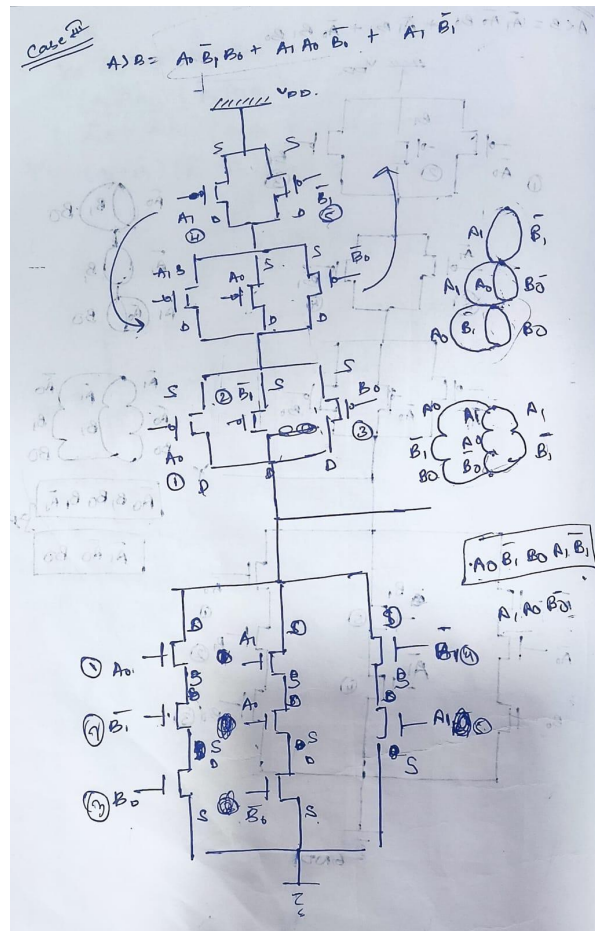 Case III
A>B = A0 B̄1 B0 + A1 A0 B̄0 + A1 B̄1
VDD.
S S
A1 D D B̄1
④ ⑤
A1 S A0 S S B̄0
D D D
S ② B̄1 S S B0
A0 D D D ③
①
A1 B̄1
A1 A0 B̄0
A0 B̄1 B0
A0 A1 A1
B̄1 A0 B̄1
B0 B̄0
A0 B̄1 B0 A1 B̄1
A1 A0 B̄0
D A1 S S
① A0 S B̄1 ④
② B̄1 D A0 D A1
S S S
D D
③ B0 S B̄0 S